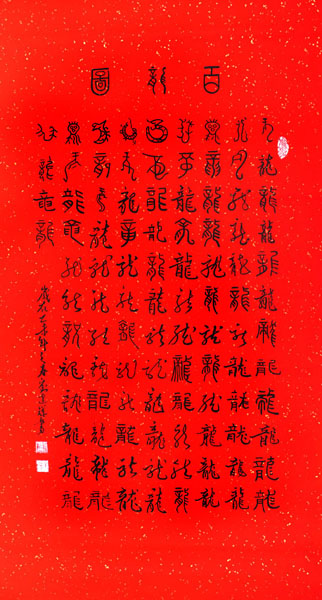 百龍圖
龍龍龍龍龍龍龍龍龍龍龍龍
龍龍龍龍龍龍龍龍龍龍龍龍
龍龍龍龍龍龍龍龍龍龍龍龍
龍龍龍龍龍龍龍龍龍龍龍龍
龍龍龍龍龍龍龍龍龍龍龍龍
龍龍龍龍龍龍龍龍龍龍龍龍
龍龍龍龍龍龍龍龍龍龍龍龍
龍龍龍龍龍龍龍龍龍龍龍龍
龍龍龍龍